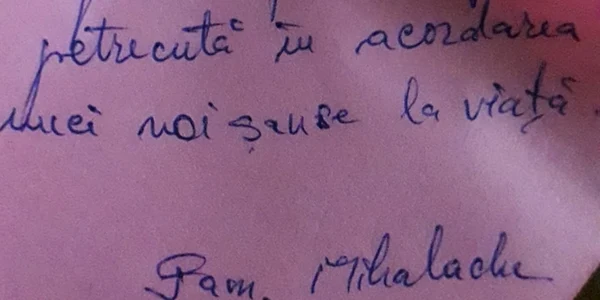 petrecută în acordarea
unei noi șanse la viață.
Fam. Mihalache